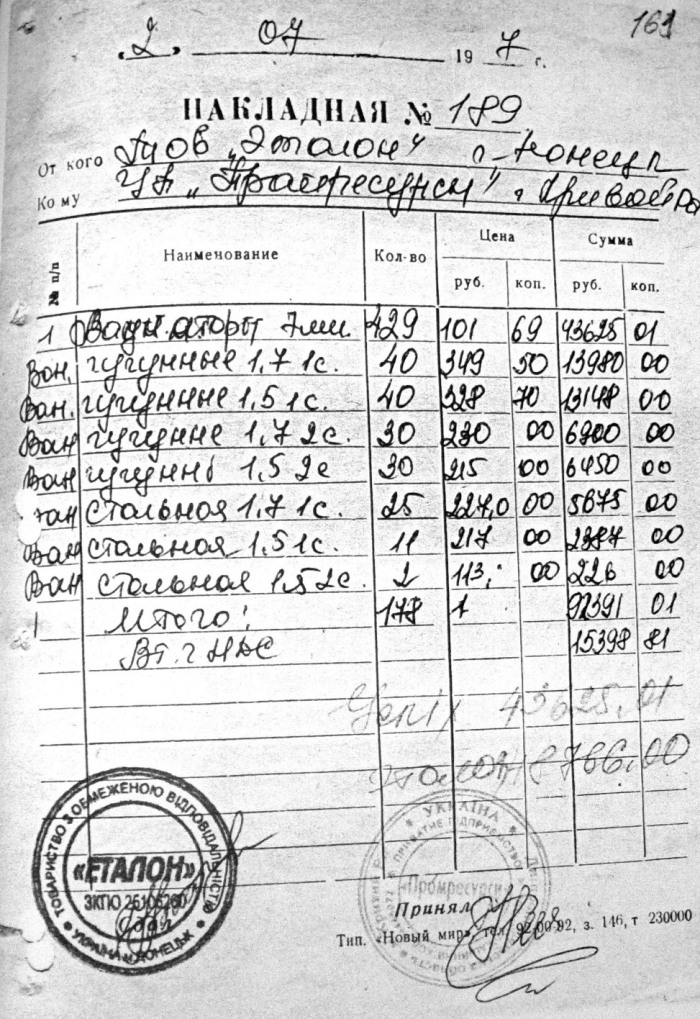 161
"2" 07 1997 г.
НАКЛАДНАЯ № 189
От кого Тов "Эталон" г. Донецк
Кому ЧП "Промресурсы" г.
№ п/п Наименование Кол-во Цена Сумма
руб. коп. руб. коп.
1 7мм. 429 101 69 43625 01
Ван. чугунные 1,7 1с. 40 349 50 13980 00
Ван. чугунные 1,5 1с. 40 328 70 13148 00
Ван чугунне 1,7 2с. 30 230 00 6900 00
Ван чугунны 1,5 2с 30 215 00 6450 00
Ван стальная 1,7 1с. 25 227,0 00 5675 00
Ван стальная 1,5 1с. 11 217 00 2387 00
Ван стальная 1,5 2с. 2 113, 00 226 00
Итого! 178 92391 01
Вт.ч НДС 15398 81
43625,01
48766,00
ТОВАРИСТВО З ОБМЕЖЕНОЮ ВІДПОВІДАЛЬНІСТЮ
«ЕТАЛОН»
ЗКПО
УКРАЇНА м.ДОНЕЦЬК
УКРАЇНА
ПРИВАТНЕ ПІДПРИЄМСТВО
«Промресурси»
Принял
Тип. «Новый мир», тел. 92-00-92, з. 146, т 230000